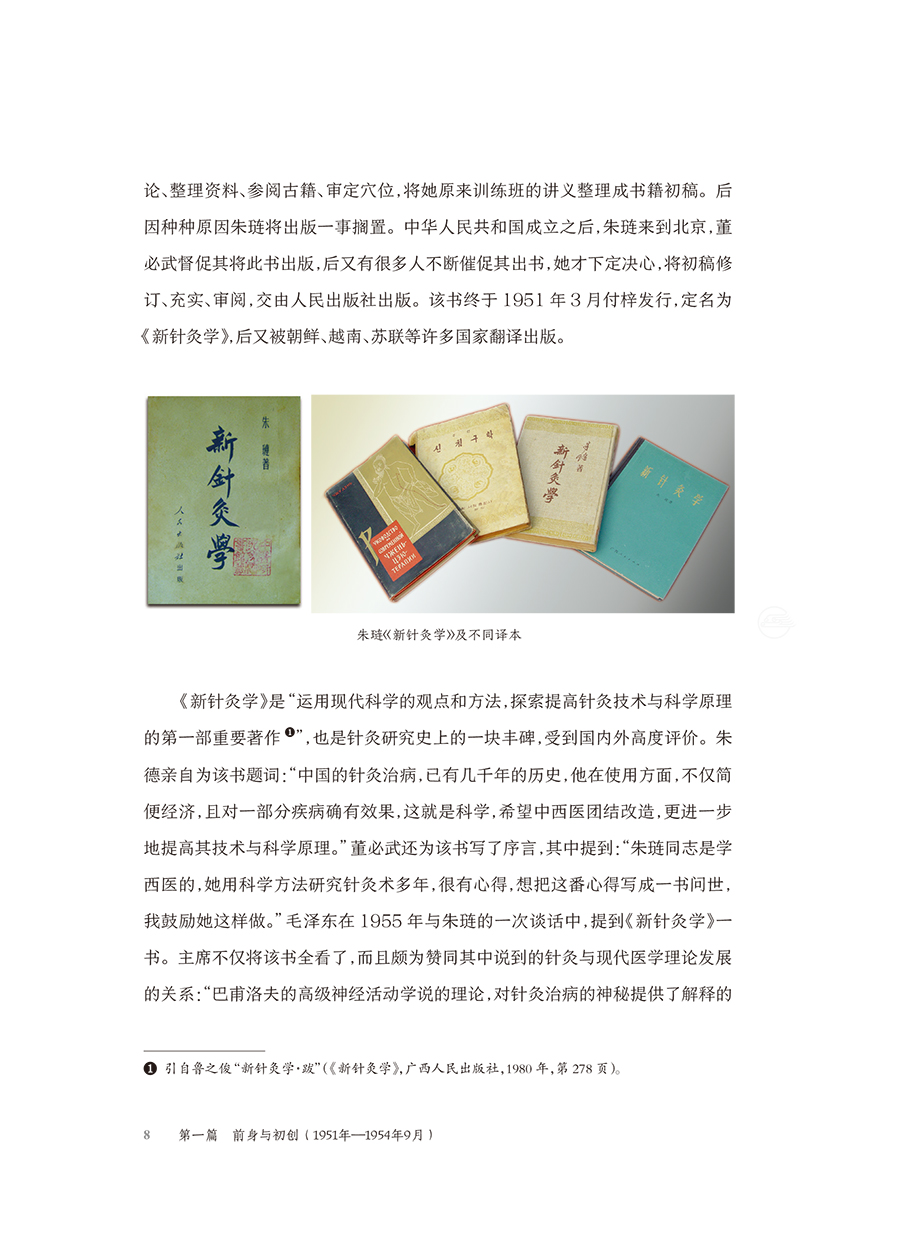 论、整理资料、参阅古籍、审定穴位，将她原来训练班的讲义整理成书籍初稿。后
因种种原因朱琏将出版一事搁置。中华人民共和国成立之后，朱琏来到北京，董
必武督促其将此书出版，后又有很多人不断催促其出书，她才下定决心，将初稿修
订、充实、审阅，交由人民出版社出版。该书终于 1951 年 3 月付梓发行，定名为
《新针灸学》，后又被朝鲜、越南、苏联等许多国家翻译出版。
朱琏著
新針灸學
人民出版社出版
РУКОВОДСТВО
СОВРЕМЕННОЙ
ЧЖЕНЬ-
ЦЗЮ-
ТЕРАПИИ
신침구학
新針灸學
新针灸学
朱琏《新针灸学》及不同译本
《新针灸学》是“运用现代科学的观点和方法，探索提高针灸技术与科学原理
的第一部重要著作❶”，也是针灸研究史上的一块丰碑，受到国内外高度评价。朱
德亲自为该书题词：“中国的针灸治病，已有几千年的历史，他在使用方面，不仅简
便经济，且对一部分疾病确有效果，这就是科学，希望中西医团结改造，更进一步
地提高其技术与科学原理。”董必武还为该书写了序言，其中提到：“朱琏同志是学
西医的，她用科学方法研究针灸术多年，很有心得，想把这番心得写成一书问世，
我鼓励她这样做。”毛泽东在 1955 年与朱琏的一次谈话中，提到《新针灸学》一
书。主席不仅将该书全看了，而且颇为赞同其中说到的针灸与现代医学理论发展
的关系：“巴甫洛夫的高级神经活动学说的理论，对针灸治病的神秘提供了解释的
❶ 引自鲁之俊“新针灸学·跋”（《新针灸学》，广西人民出版社，1980 年，第 278 页）。
8 第一篇 前身与初创（1951年—1954年9月）